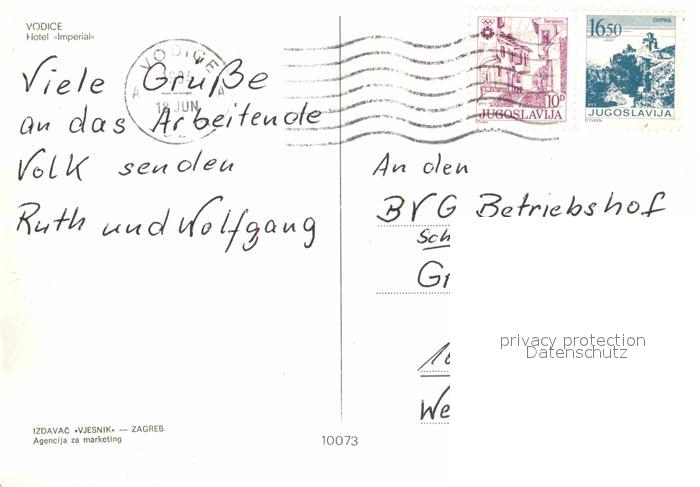 VODICE
Hotel »Imperial«
VODICE
18 JUN
Sarajevo
10D
PTT
JUGOSLAVIJA
ОХРИД
1650
PTT
JUGOSLAVIJA
Viele Grüße
an das Arbeitende
Volk senden
Ruth und Wolfgang
An den
BVG Betriebshof
Sch
Gr
privacy protection
Datenschutz
10
We
IZDAVAČ »VJESNIK« — ZAGREB
Agencija za marketing
10073